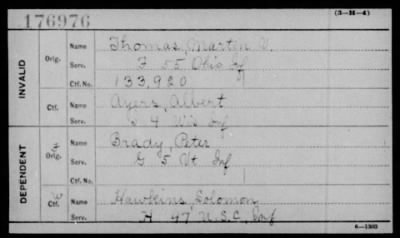 176976
(3-H-4)
INVALID
Orig.
Name Thomas, Martin V.
Serv. F 55 Ohio Inf
Ctf. No. 133,920
Ctf.
Name Ayers, Albert
Serv. 4 Wis Inf
DEPENDENT
Orig.
Name Brady, Peter
Serv. G 5 Vt Inf
Ctf. No.
W
Ctf.
Name Hawkins, Solomon
Serv. H 47 U.S.C. Inf
6-1303